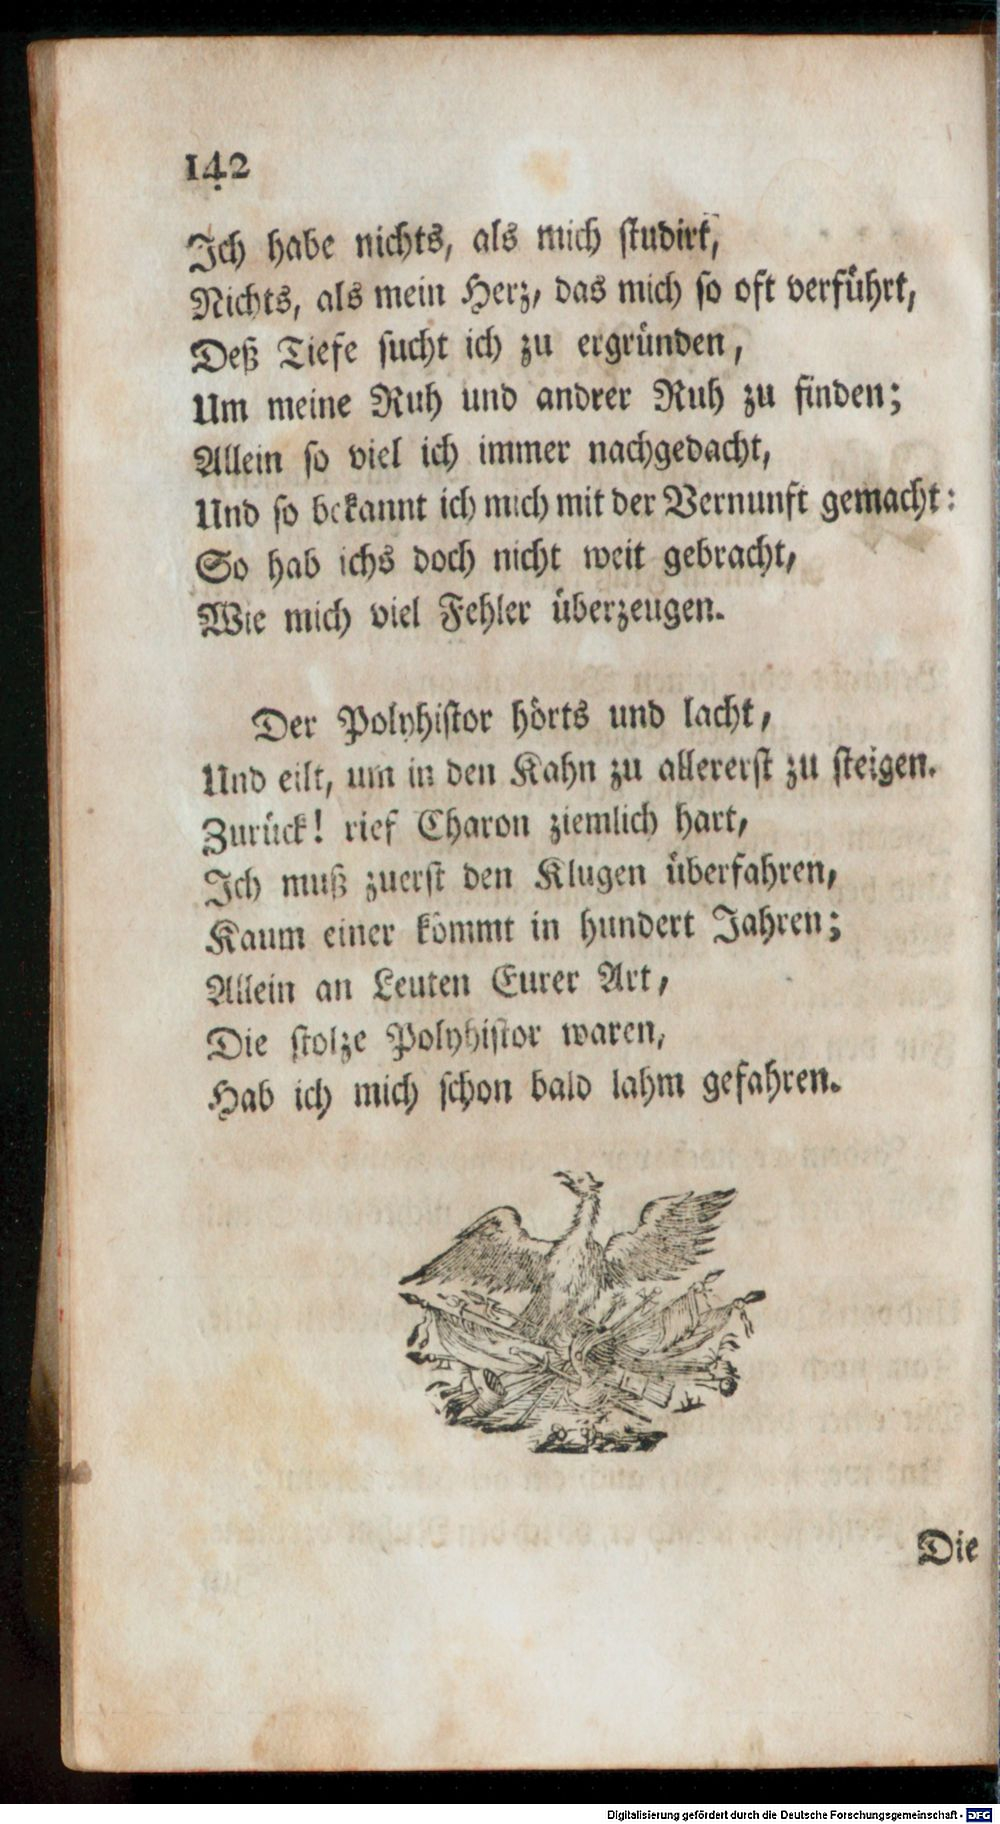 142
Ich habe nichts, als mich studirt,
Nichts, als mein Herz, das mich so oft verführt,
Deß Tiefe sucht ich zu ergründen,
Um meine Ruh und andrer Ruh zu finden;
Allein so viel ich immer nachgedacht,
Und so bekannt ich mich mit der Vernunft gemacht:
So hab ichs doch nicht weit gebracht,
Wie mich viel Fehler überzeugen.
Der Polyhistor hörts und lacht,
Und eilt, um in den Kahn zu allererst zu steigen.
Zurück! rief Charon ziemlich hart,
Ich muß zuerst den Klugen überfahren,
Kaum einer kömmt in hundert Jahren;
Allein an Leuten Eurer Art,
Die stolze Polyhistor waren,
Hab ich mich schon bald lahm gefahren.
Die
Digitalisierung gefördert durch die Deutsche Forschungsgemeinschaft - DFG